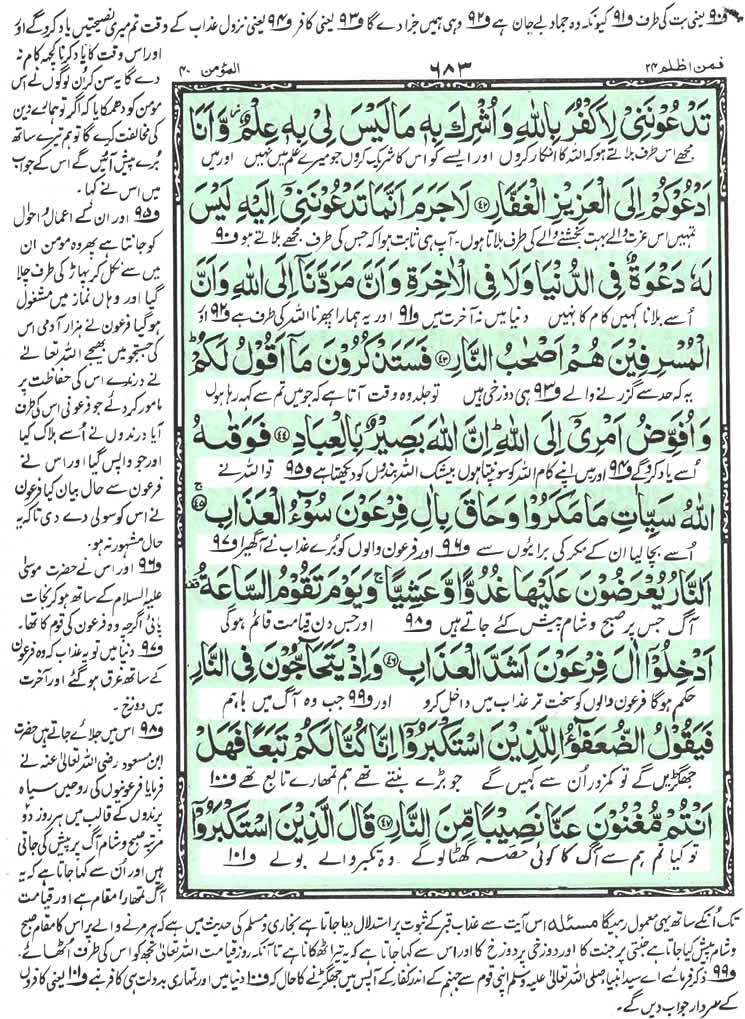 و۹۰ یعنی بت کی طرف و۹۱ کیونکہ وہ جماد بے جان ہے و۹۲ وہی ہمیں جزا دے گا و۹۳ یعنی کافر و۹۴ یعنی نزول عذاب کے وقت تم میری نصیحتیں یاد کرو گے اور
اور اس وقت کا یاد کرنا کچھ کام نہ
دے گا یہ سن کر ان لوگوں نے اس
مؤمن کو دھمکایا کہ اگر تو ہمارے دین
کی مخالفت کرے گا تو ہم تیرے ساتھ
بُرے پیش آئیں گے اس کے جواب
میں اس نے کہا۔
و۹۵ اور ان کے اعمال و احوال
کو جانتا ہے پھر وہ مؤمن ان
میں سے نکل کر پہاڑ کی طرف چلا
گیا اور وہاں نماز میں مشغول
ہو گیا فرعون نے ہزار آدمی اس
کی جستجو میں بھیجے اللہ تعالیٰ
نے درندے اس کی حفاظت پر
مامور کر دئیے جو فرعونی اس کی طرف
آیا درندوں نے اُسے ہلاک کیا
اور جو واپس گیا اور اس نے
فرعون سے حال بیان کیا فرعون
نے اس کو سولی دے دی تاکہ یہ
حال مشہور نہ ہو۔
و۹۶ اور اس نے حضرت موسیٰ
علیہ السلام کے ساتھ ہو کر نجات
پائی اگرچہ وہ فرعون کی قوم کا تھا۔
و۹۷ دنیا میں تو یہ عذاب کہ وہ فرعون
کے ساتھ غرق ہو گئے اور آخرت
میں دوزخ۔
و۹۸ اس میں جلائے جاتے ہیں حضرت
ابن مسعود رضی اللہ تعالیٰ عنہ نے
فرمایا فرعونیوں کی روحیں سیاہ
پرندوں کے قالب میں ہر روز دو
مرتبہ صبح و شام آگ پر پیش کی جاتی
ہیں اور اُن سے کہا جاتا ہے کہ یہ
آگ تمھارا مقام ہے اور قیامت
فمن اظلم ۲۴ ۶۸۳ المؤمن ۴۰
تَدْعُوْنَنِیْ لِاَكْفُرَ بِاللّٰهِ وَ اُشْرِكَ بِهٖ مَا لَیْسَ لِیْ بِهٖ عِلْمٌ٘ وَّ اَنَا
مجھے اس طرف بلاتے ہو کہ اللہ کا انکار کروں اور ایسے کو اس کا شریک کروں جو میرے علم میں نہیں اور میں
اَدْعُوْكُمْ اِلَى الْعَزِیْزِ الْغَفَّارِ ﴿۴۲﴾ لَا جَرَمَ اَنَّمَا تَدْعُوْنَنِیْۤ اِلَیْهِ لَیْسَ
تمہیں اس عزت والے بہت بخشنے والے کی طرف بلاتا ہوں۔ آپ ہی ثابت ہوا کہ جس کی طرف مجھے بلاتے ہو و۹۰
لَهٗ دَعْوَةٌ فِی الدُّنْیَا وَ لَا فِی الْاٰخِرَةِ وَ اَنَّ مَرَدَّنَاۤ اِلَى اللّٰهِ وَ اَنَّ
اُسے بلانا کہیں کام کا نہیں دنیا میں نہ آخرت میں و۹۱ اور یہ ہمارا پھرنا اللہ کی طرف ہے و۹۲ اور
الْمُسْرِفِیْنَ هُمْ اَصْحٰبُ النَّارِ ﴿۴۳﴾ فَسَتَذْكُرُوْنَ مَاۤ اَقُوْلُ لَكُمْؕ
یہ کہ حد سے گزرنے والے و۹۳ ہی دوزخی ہیں تو جلد وہ وقت آتا ہے کہ جو میں تم سے کہہ رہا ہوں
وَ اُفَوِّضُ اَمْرِیْۤ اِلَى اللّٰهِؕ اِنَّ اللّٰهَ بَصِیْرٌۢ بِالْعِبَادِ ﴿۴۴﴾ فَوَقٰىهُ
اُسے یاد کرو گے و۹۴ اور میں اپنے کام اللہ کو سونپتا ہوں بیشک اللہ بندوں کو دیکھتا ہے و۹۵ تو اللہ نے
اللّٰهُ سَیِّاٰتِ مَا مَكَرُوْا وَ حَاقَ بِاٰلِ فِرْعَوْنَ سُوْٓءُ الْعَذَابِ ﴿۴۵﴾ۚ
اُسے بچا لیا ان کے مکر کی برائیوں سے و۹۶ اور فرعون والوں کو بُرے عذاب نے آگھیرا و۹۷
اَلنَّارُ یُعْرَضُوْنَ عَلَیْهَا غُدُوًّا وَّ عَشِیًّاۚ وَ یَوْمَ تَقُوْمُ السَّاعَةُ۫
آگ جس پر صبح و شام پیش کئے جاتے ہیں و۹۸ اور جس دن قیامت قائم ہوگی
اَدْخِلُوْۤا اٰلَ فِرْعَوْنَ اَشَدَّ الْعَذَابِ ﴿۴۶﴾ وَ اِذْ یَتَحَآجُّوْنَ فِی النَّارِ
حکم ہوگا فرعون والوں کو سخت تر عذاب میں داخل کرو اور و۹۹ جب وہ آگ میں باہم
فَیَقُوْلُ الضُّعَفٰٓؤُا لِلَّذِیْنَ اسْتَكْبَرُوْۤا اِنَّا كُنَّا لَكُمْ تَبَعًا فَهَلْ
جھگڑیں گے تو کمزور اُن سے کہیں گے جو بڑے بنتے تھے ہم تمھارے تابع تھے و۱۰۰
اَنْتُمْ مُّغْنُوْنَ عَنَّا نَصِیْبًا مِّنَ النَّارِ ﴿۴۷﴾ قَالَ الَّذِیْنَ اسْتَكْبَرُوْۤا
تو کیا تم ہم سے آگ کا کوئی حصہ گھٹا لوگے وہ تکبر والے بولے و۱۰۱
تک اُن کے ساتھ یہی معمول رہے گا مسئلہ اس آیت سے عذاب قبر کے ثبوت پر استدلال کیا جاتا ہے بخاری و مسلم کی حدیث میں ہے کہ ہر مرنے والے پر اس کا مقام صبح
و شام پیش کیا جاتا ہے جنتی پر جنت کا اور دوزخی پر دوزخ کا اور اس سے کہا جاتا ہے کہ یہ تیرا ٹھکانا ہے تا آنکہ روز قیامت اللہ تعالیٰ تجھ کو اس کی طرف اُٹھائے۔
و۹۹ ذکر فرمائیے اے سید انبیا صلی اللہ تعالیٰ علیہ وسلم اپنی قوم سے جہنم کے اندر کفار کے آپس میں جھگڑنے کا حال کہ و۱۰۰ دنیا میں اور تمہاری بدولت ہی کافر بنے و۱۰۱ یعنی کافروں
کے سردار جواب دیں گے۔